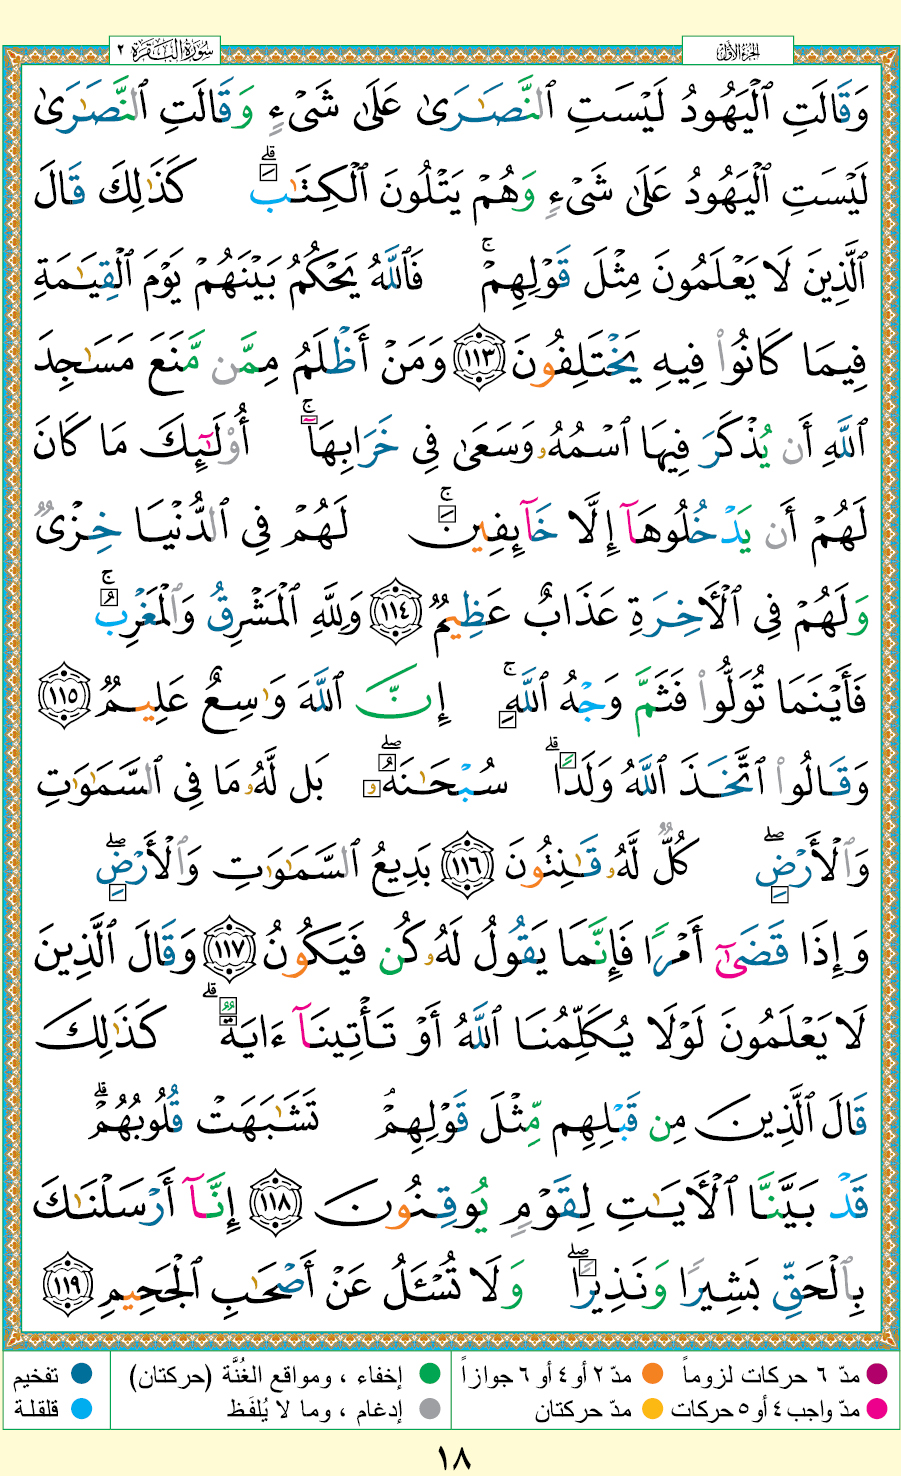 الجزء الأول
سورة البقرة ٢
وَقَالَتِ ٱلۡيَهُودُ لَيۡسَتِ ٱلنَّصَـٰرَىٰ عَلَىٰ شَيۡءٍ وَقَالَتِ ٱلنَّصَـٰرَىٰ
لَيۡسَتِ ٱلۡيَهُودُ عَلَىٰ شَيۡءٍ وَهُمۡ يَتۡلُونَ ٱلۡكِتَـٰبَۗ كَذَٰلِكَ قَالَ
ٱلَّذِينَ لَا يَعۡلَمُونَ مِثۡلَ قَوۡلِهِمۡۚ فَٱللَّهُ يَحۡكُمُ بَيۡنَهُمۡ يَوۡمَ ٱلۡقِيَـٰمَةِ
فِيمَا كَانُوا۟ فِيهِ يَخۡتَلِفُونَ ١١٣ وَمَنۡ أَظۡلَمُ مِمَّن مَّنَعَ مَسَـٰجِدَ
ٱللَّهِ أَن يُذۡكَرَ فِيهَا ٱسۡمُهُۥ وَسَعَىٰ فِي خَرَابِهَآۚ أُو۟لَـٰٓئِكَ مَا كَانَ
لَهُمۡ أَن يَدۡخُلُوهَآ إِلَّا خَآئِفِينَۚ لَهُمۡ فِي ٱلدُّنۡيَا خِزۡيٌ
وَلَهُمۡ فِي ٱلۡأَخِرَةِ عَذَابٌ عَظِيمٌ ١١٤ وَلِلَّهِ ٱلۡمَشۡرِقُ وَٱلۡمَغۡرِبُۚ
فَأَيۡنَمَا تُوَلُّوا۟ فَثَمَّ وَجۡهُ ٱللَّهِۚ إِنَّ ٱللَّهَ وَٰسِعٌ عَلِيمٌ ١١٥
وَقَالُوا۟ ٱتَّخَذَ ٱللَّهُ وَلَدًاۗ سُبۡحَـٰنَهُۥۖ بَل لَّهُۥ مَا فِي ٱلسَّمَـٰوَٰتِ
وَٱلۡأَرۡضِۖ كُلٌّ لَّهُۥ قَـٰنِتُونَ ١١٦ بَدِيعُ ٱلسَّمَـٰوَٰتِ وَٱلۡأَرۡضِۖ
وَإِذَا قَضَىٰٓ أَمۡرًا فَإِنَّمَا يَقُولُ لَهُۥ كُن فَيَكُونُ ١١٧ وَقَالَ ٱلَّذِينَ
لَا يَعۡلَمُونَ لَوۡلَا يُكَلِّمُنَا ٱللَّهُ أَوۡ تَأۡتِينَآ ءَايَةٌۗ كَذَٰلِكَ
قَالَ ٱلَّذِينَ مِن قَبۡلِهِم مِّثۡلَ قَوۡلِهِمۘۡ تَشَـٰبَهَتۡ قُلُوبُهُمۡۗ
قَدۡ بَيَّنَّا ٱلۡأَيَـٰتِ لِقَوۡمٍ يُوقِنُونَ ١١٨ إِنَّآ أَرۡسَلۡنَـٰكَ
بِٱلۡحَقِّ بَشِيرًا وَنَذِيرًاۖ وَلَا تُسۡـَٔلُ عَنۡ أَصۡحَـٰبِ ٱلۡجَحِيمِ ١١٩
مدّ ٦ حركات لزوماً مدّ ٢ أو ٤ أو ٦ جوازاً إخفاء ، ومواقع الغُنَّة (حركتان) تفخيم
مدّ واجب ٤ أو ٥ حركات مدّ حركتان إدغام ، وما لا يُلفَظ قلقلة
١٨